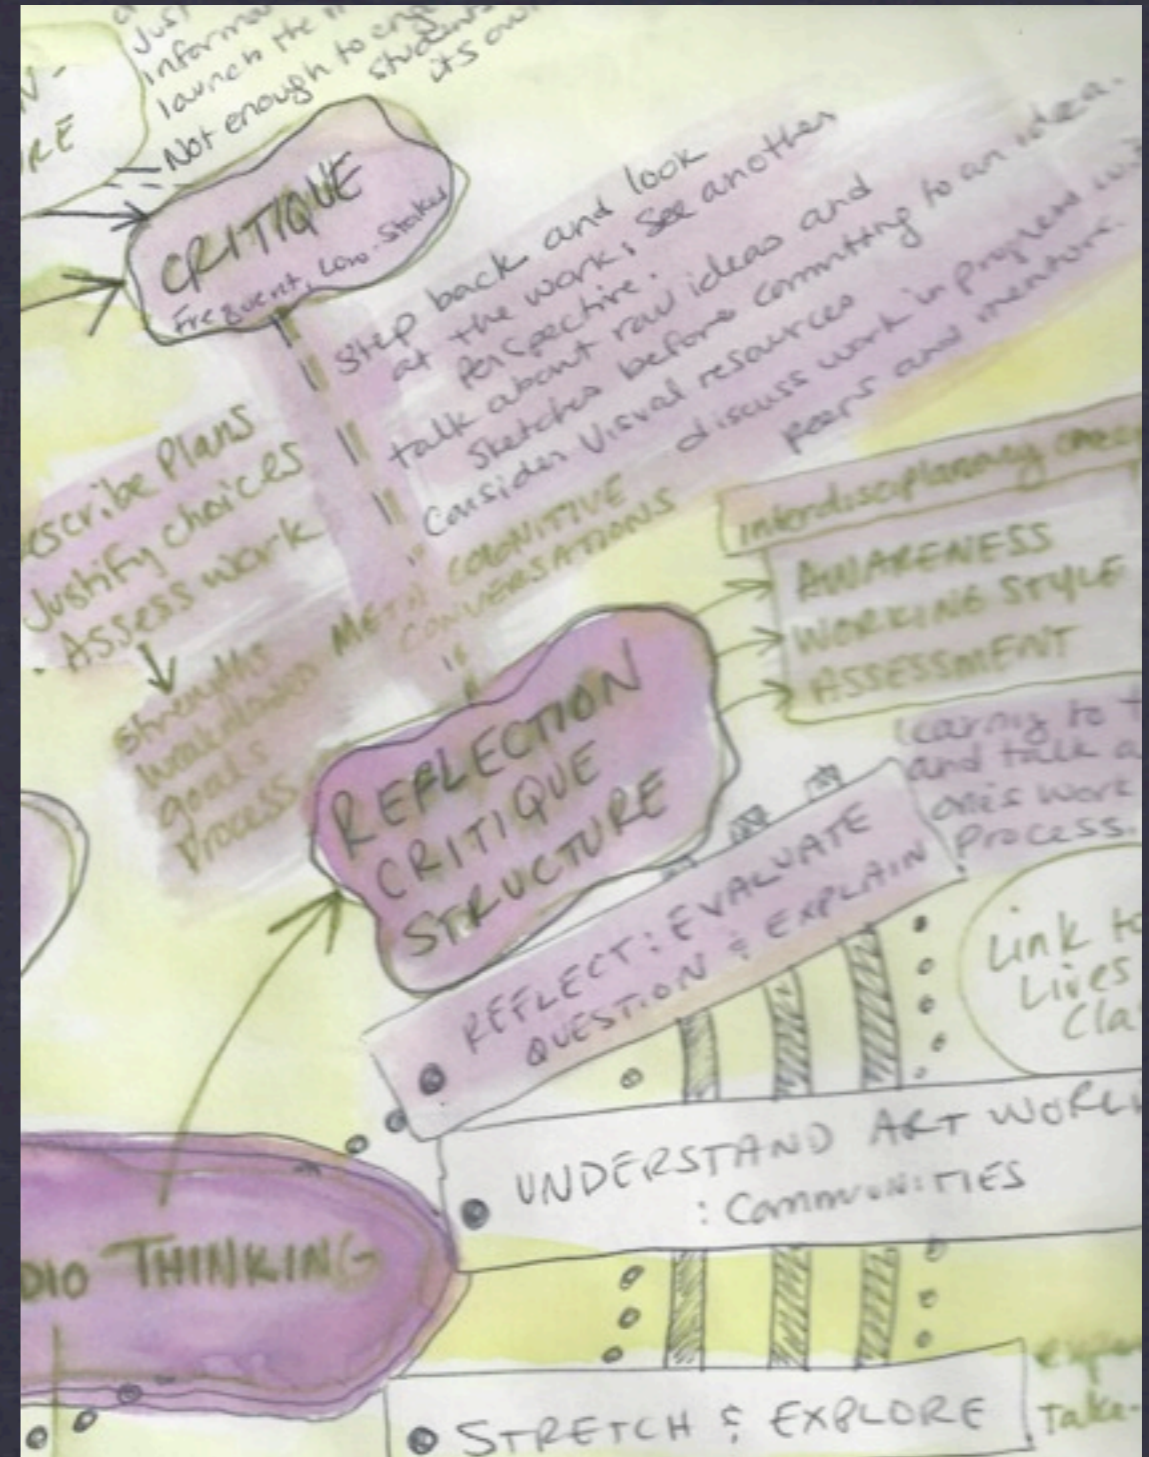 Just
informa
launch the
Not enough to eng
students
its own
N-
RE
CRITIQUE
Frequent, Low-Stakes
Step back and look
at the work; See another
Perspective.
talk about raw ideas and
Sketches before committing to an idea.
Consider Visual resources
discuss work in progress wi
peers and mentors.
escribe Plans
Justify choices
. Assess work
strengths
goals
Process
META COGNITIVE
CONVERSATIONS
interdisciplanary
AWARENESS
WORKING STYLE
ASSESSMENT
REFLECTION
CRITIQUE
STRUCTURE
learnig to t
and talk a
one's work
Process.
REFLECT: EVALUATE
QUESTION & EXPLAIN
Link to
Lives
Cla
UNDERSTAND ART WORL
: COMMUNITIES
DIO THINKING
STRETCH & EXPLORE
Take-